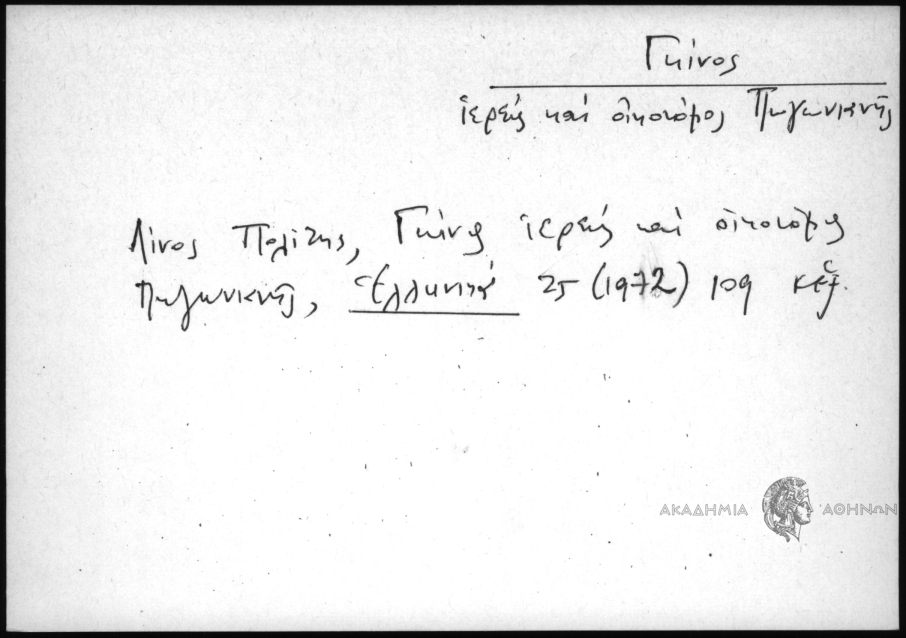 Γκίνος
ἱερεύς καί οἰκονόμος Πωγωνιανῆς
Λίνος Πολίτης, Γκίνος ἱερεύς καί οἰκονόμος
Πωγωνιανῆς, Ἑλληνικά 25 (1972) 109 κἑξ.
ΑΚΑΔΗΜΙΑ ΑΘΗΝΩΝ